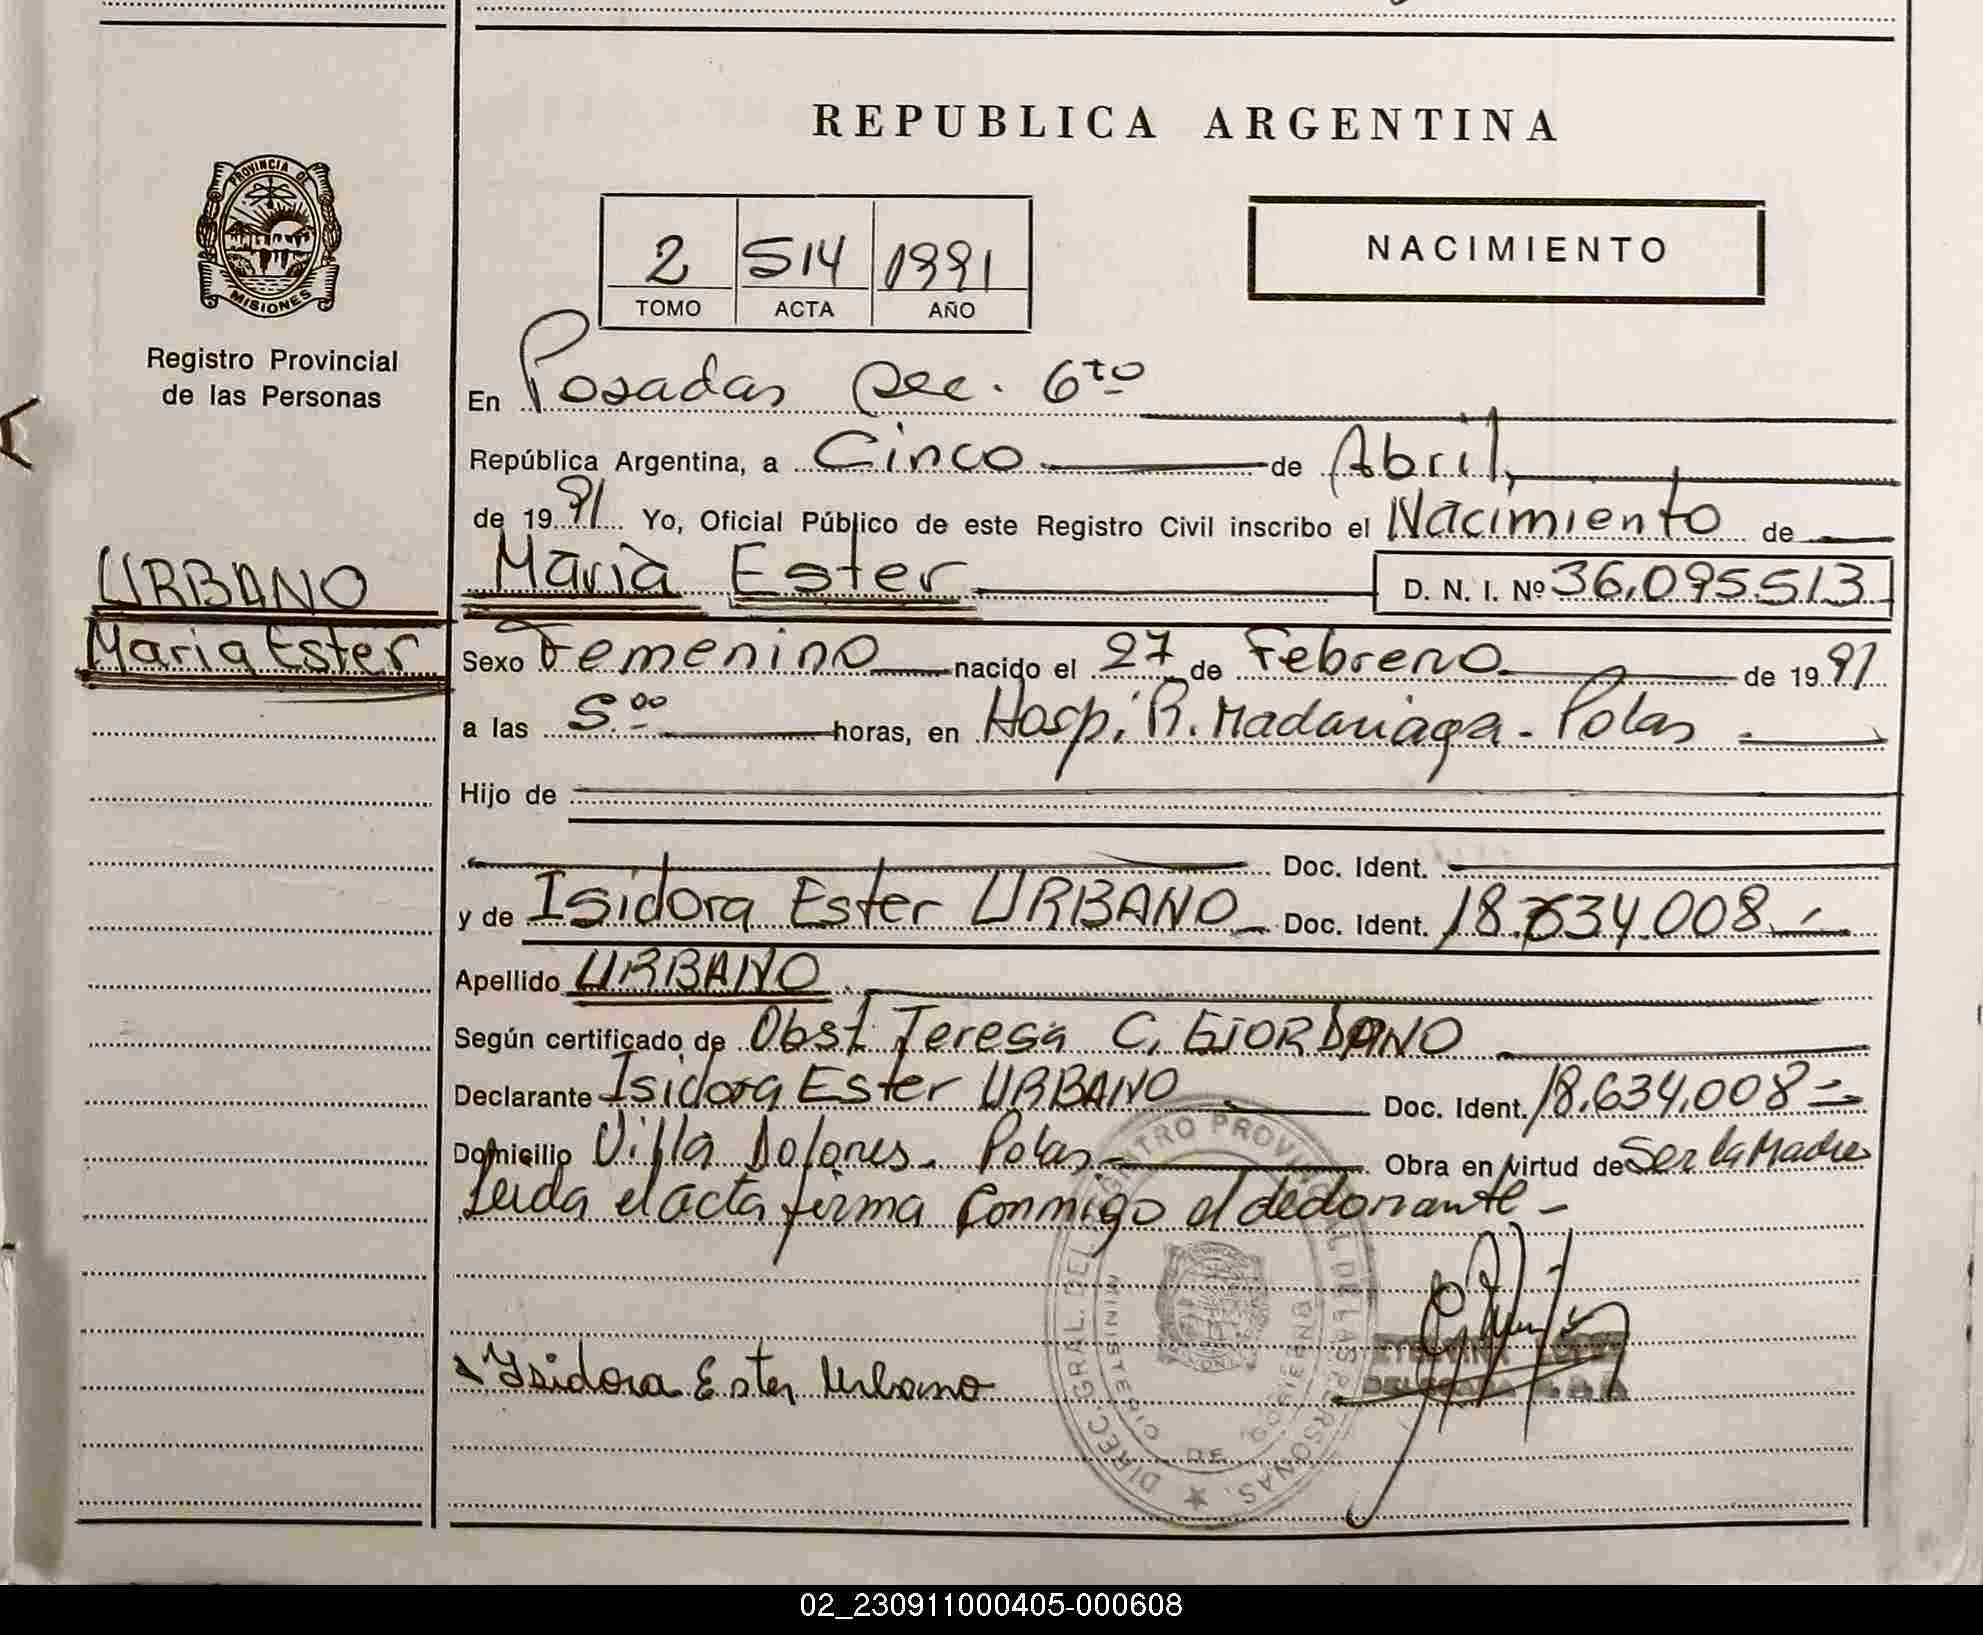 REPUBLICA ARGENTINA
PROVINCIA DE
MISIONES
Registro Provincial
de las Personas
2 514 1991
TOMO ACTA AÑO
NACIMIENTO
En Posadas Sec. 6to
República Argentina, a Cinco de Abril,
de 1991 Yo, Oficial Público de este Registro Civil inscribo el Nacimiento de
URBANO
Maria Ester
Maria Ester D. N. I. Nº 36.095513
Sexo Femenino nacido el 27 de Febrero de 1991
a las 5.00 horas, en Hosp. R. Madariaga - Pdas
Hijo de
Doc. Ident.
y de Isidora Ester URBANO Doc. Ident. 18.634.008
Apellido URBANO
Según certificado de Obst. Teresa C. GIORDANO
Declarante Isidora Ester URBANO Doc. Ident. 18.634.008
Domicilio Villa Dolores - Pdas Obra en virtud de Ser la Madre
Leida el acta firma conmigo el declarante -
Isidora Ester Urbano
DIREC. GRAL. DEL REGISTRO PROVINCIAL DE LAS PERSONAS.
MINISTERIO DE GOBIERNO
02_230911000405-000608